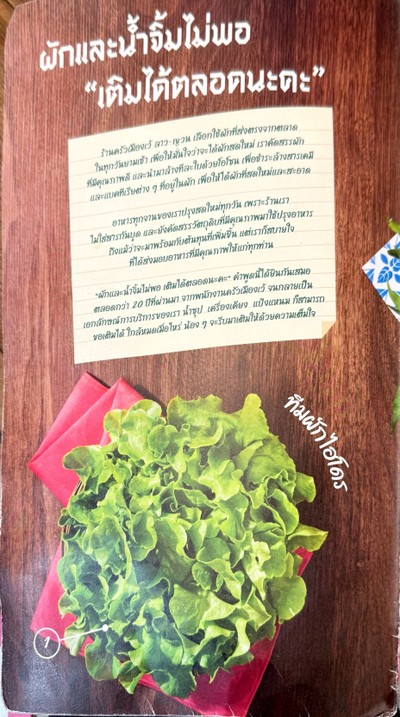 ผักและน้ำจิ้มไม่พอ
“เติมได้ตลอดนะคะ”
ร้านครัวเมืองเว้ ลาว-ญวน เลือกใช้ผักที่ส่งตรงจากตลาด
ในทุกวันยามเช้า เพื่อให้มั่นใจว่าจะได้ผักสดใหม่ เราคัดสรรผัก
ที่มีคุณภาพดี และนำมาล้างทีละใบด้วยโอโซน เพื่อชำระล้างสารเคมี
และแบคทีเรียต่าง ๆ ที่อยู่ในผัก เพื่อให้ได้ผักที่สดใหม่และสะอาด
อาหารทุกจานของเราปรุงสดใหม่ทุกวัน เพราะร้านเรา
ไม่ใส่สารกันบูด และยังคัดสรรวัตถุดิบที่มีคุณภาพมาใช้ปรุงอาหาร
ถึงแม้ว่าจะมาพร้อมกับต้นทุนที่เพิ่มขึ้น แต่เราก็สบายใจ
ที่ได้ส่งมอบอาหารที่มีคุณภาพให้แก่ทุกท่าน
"ผักและน้ำจิ้มไม่พอ เติมได้ตลอดนะคะ" คำพูดนี้ได้ยินกันเสมอ
ตลอดกว่า 20 ปีที่ผ่านมา จากพนักงานครัวเมืองเว้ จนกลายเป็น
เอกลักษณ์การบริการของเรา น้ำซุป เครื่องเคียง แป้งแหนม ก็สามารถ
ขอเติมได้ ใกล้หมดเมื่อไหร่ น้อง ๆ จะรีบมาเติมให้ด้วยความเต็มใจ
ทีมผักไฮโดร
1